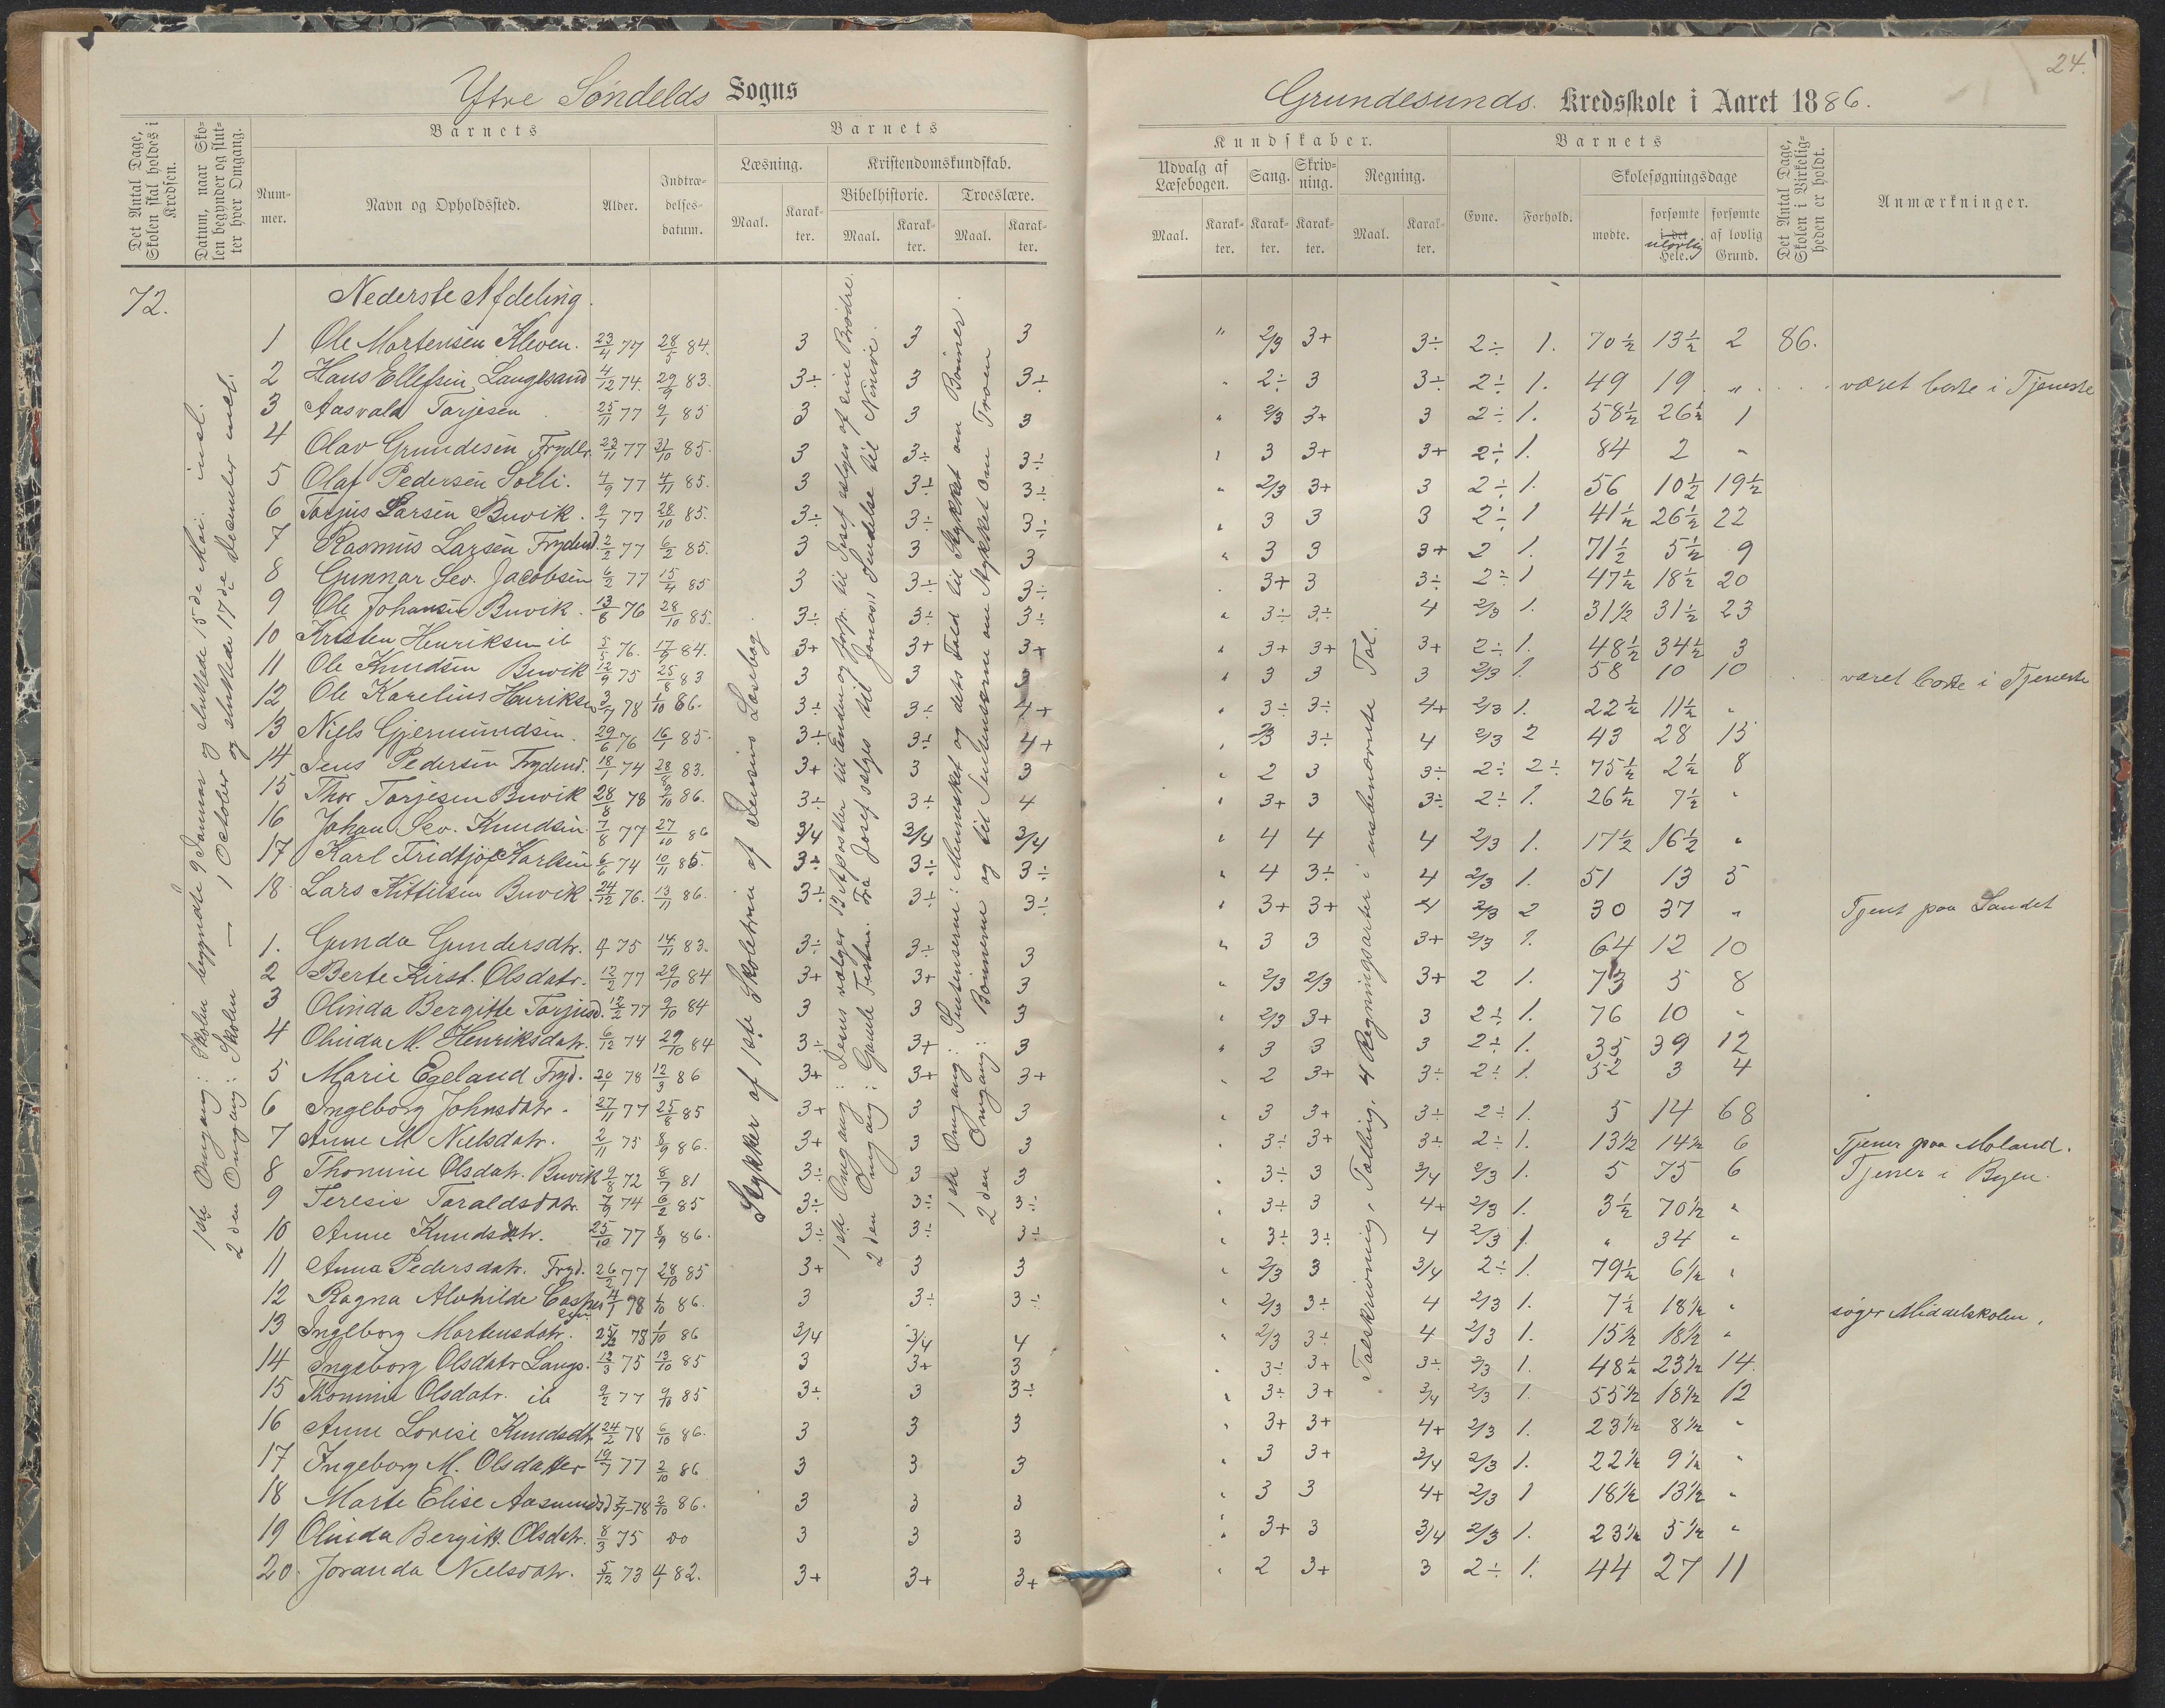 24.
Ytre Söndelds Sogns
Grundesunds Kredsskole i Aaret 1886.
Det Antal Dage, Skolen skal holdes i Kredsen.
Datum, naar Skolen begynder og slutter hver Omgang.
Barnets
Nummer.
Navn og Opholdssted.
Alder.
Indtrædelsesdatum.
Barnets
Læsning.
Kristendomskundskab.
Bibelhistorie.
Troeslære.
Maal. Karakter. Maal. Karakter. Maal. Karakter.
Kundskaber.
Udvalg af Læsebogen.
Sang.
Skrivning.
Regning.
Maal. Karakter. Karakter. Karakter. Maal. Karakter.
Barnets
Evne. Forhold.
Skolesøgningsdage
mødte.
forsømte i det ulovlig Hele.
forsømte af lovlig Grund.
Det Antal Dage, Skolen i Virkeligheden er holdt.
Anmærkninger.
72.
Nederste Afdeling.
1ste Omgang: Skolen begyndte 9 Januar og sluttede 15de Mai. incl.
2den Omgang: Skolen — 1 October og sluttede 17de December incl.
Stykker af 1ste Skoletrin af Jensens Læsebog.
1ste Omgang: Jesus vælger 12 Apostler til Ending og
2den Omgang: Gamle Testm. Fra Josef sælges til Jonas's Sendelse til Ninive.
1ste Omgang:
2den Omgang: Bønnerne og til
Talskrivning, Tælling, 4 Regningsarter i ensbenævnte Tal.
1 Ole Mortensen Kleven. 23/4 77 28/5 84. 3 3 3 " 2/3 3+ 3÷ 2÷ 1. 70½ 13½ 2 86.
2 Hans Ellefsen, Langesand 4/12 74. 29/9 83. 3÷ 3 3÷ " 2÷ 3 3÷ 2÷ 1. 49 19 " været borte i Tjeneste
3 Aasvald Torjesen 25/11 77 9/1 85 3 3 3 " 2/3 3+ 3 2÷ 1. 58½ 26½ 1
4 Olav Grundesen Frydb. 23/11 77 31/10 85. 3 3÷ 3÷ " 3 3+ 3+ 2÷ 1. 84 2 "
5 Olaf Pedersen Solli. 4/9 77 4/11 85. 3 3÷ 3÷ " 2/3 3+ 3 2÷ 1. 56 10½ 19½
6 Torjus Larsen Buvik. 9/7 77 28/10 85. 3÷ 3÷ 3÷ " 3 3 3 2÷ 1 41½ 26½ 22
7 Rasmus Larsen Frydend. 2/2 77 6/2 85. 3 3 3 " 3 3 3+ 2 1. 71½ 5½ 9
8 Gunnar Sev. Jacobsen 6/2 77 15/4 85 3 3÷ 3÷ " 3+ 3 3÷ 2÷ 1 47½ 18½ 20
9 Ole Johansen Buvik. 13/6 76 28/10 85. 3÷ 3÷ 3÷ " 3÷ 3÷ 4 2/3 1. 31½ 31½ 23
10 Kristen Henriksen ib 5/5 76. 17/9 84. 3+ 3+ 3+ " 3+ 3+ 3+ 2÷ 1. 48½ 34½ 3
11 Ole Knudsen Buvik 12/9 75 25/8 83 3 3 3 " 3 3 3 2/3 1. 58 10 10 været borte i Tjeneste
12 Ole Karelius Henriksen 3/7 78 1/10 86. 3÷ 3÷ 4+ " 3÷ 3÷ 4+ 2/3 1. 22½ 11½ "
13 Niels Gjermundsen. 29/6 76 16/1 85. 3÷ 3÷ 4+ " 2/3 3÷ 4 2/3 2 43 28 15
14 Jens Pedersen Frydend. 18/1 74 28/8 83. 3+ 3 3 " 2 3 3÷ 2÷ 2÷ 75½ 2½ 8
15 Thor Torjesen Buvik 28/8 78 9/10 86. 3÷ 3÷ 4 " 3+ 3 3÷ 2÷ 1. 26½ 7½ "
16 Johan Sev. Knudsen 7/8 77 27/10 86 3/4 3/4 3/4 " 4 4 4 2/3 1. 17½ 16½ "
17 Karl Fridtjof Karlsen 6/6 74 10/11 85. 3÷ 3÷ 3÷ " 4 3÷ 4 2/3 1. 51 13 5
18 Lars Kittilsen Buvik. 24/12 76. 13/11 86. 3÷ 3÷ 3÷ " 3+ 3+ 4 2/3 2 30 37 " Tjent paa Sandet
1. Gunda Gundersdtr. 75 14/11 83. 3÷ 3÷ 3 " 3 3 3+ 2/3 1. 64 12 10
2 Berte Kirst. Olsdatr. 12/2 77 29/10 84 3+ 3+ 3 " 2/3 2/3 3+ 2 1. 73 5 8
3 Olinda Bergitte Torjusd. 12/2 77 9/10 84 3 3 3 " 2/3 3+ 3 2÷ 1. 76 10 "
4 Olinda M. Henriksdatr. 6/12 74 29/10 84 3÷ 3+ 3 " 3 3 3 2÷ 1. 35 39 12
5 Marie Egeland Fryd. 20/1 78 12/3 86 3+ 3+ 3+ " 2 3+ 3÷ 2÷ 1. 52 3 4
6 Ingeborg Johnsdatr. 27/11 77 25/8 85 3+ 3 3 " 3 3+ 3÷ 2÷ 1. 5 14 68
7 Anne M. Nielsdatr. 2/11 75 8/9 86. 3+ 3 3 " 3÷ 3+ 3÷ 2÷ 1. 13½ 14½ 6 Tjener paa Moland.
8 Thomine Olsdatr. Buvik 9/8 72 8/7 81 3÷ 3 3 " 3÷ 3 3/4 2/3 1. 5 75 6 Tjener i Byen.
9 Teresie Taraldsdatr. 7/9 74 6/2 85 3÷ 3÷ 3÷ " 3÷ 3 4+ 2/3 1. 3½ 70½ "
10 Anne Knudsdatr. 25/10 77 8/9 86. 3÷ 3÷ 3÷ " 3÷ 3÷ 4 2/3 1. " 34 "
11 Anna Pedersdatr. Fryd. 26/2 77 28/10 85 3+ 3 3 " 2/3 3 3/4 2÷ 1. 79½ 6½ "
12 Ragna Alvhilde Caspersen 4/1 78 1/10 86. 3 3÷ 3÷ " 2/3 3÷ 4 2/3 1. 7½ 18½ " søger Middelskolen.
13 Ingeborg Mortensdatr. 25/12 78 1/10 86 3/4 3/4 4 " 2/3 3÷ 4 2/3 1. 15½ 18½ "
14 Ingeborg Olsdatr Langs. 12/3 75 13/10 85 3 3+ 3 " 3÷ 3+ 3÷ 2/3 1. 48½ 23½ 14.
15 Thomine Olsdatr. ib 9/2 77 9/10 85 3÷ 3 3÷ " 3÷ 3+ 3/4 2/3 1. 55½ 18½ 12
16 Anne Lovise Knudsdtr 24/2 78 6/10 86. 3 3 3 " 3+ 3+ 4+ 2/3 1. 23½ 8½ "
17 Ingeborg M. Olsdatter 19/7 77 2/10 86 3 3 3 " 3 3+ 3/4 2/3 1. 22½ 9½ "
18 Marte Elise Aasmundsd 7/7-78 2/10 86. 3 3 3 " 3 3 4+ 2/3 1 18½ 13½ "
19 Olinda Bergitt. Olsdatr. 8/3 75 do 3 3 3 " 3+ 3 3/4 2/3 1. 23½ 5½ "
20. Joranda Nielsdatr. 5/12 73 4/1 82. 3+ 3+ 3+ " 2 3+ 3 2÷ 1. 44 27 11